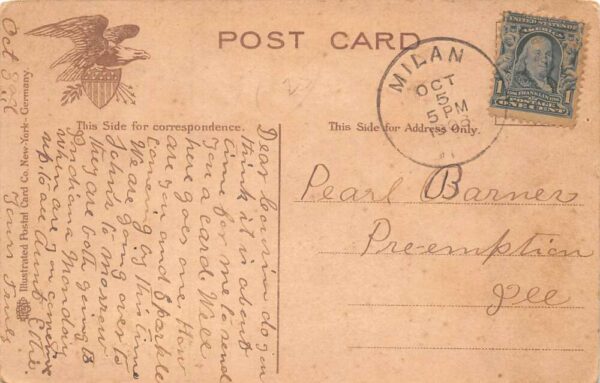 POST CARD
MILAN
OCT
5
5 PM
UNITED STATES OF
AMERICA
FRANKLIN
POSTAGE
ONE CENT
1
1
This Side for correspondence.
This Side for Address Only.
Pearl Barner
Pre-emption
Ill
Oct 3rd
Dear Cousin do you
think it is about
time for me to send
you a card. Well
here goes one How
are you and Sparkle
coming by this time
We are going over to
Johns to morrow
they are both going to
Indiana Monday
when are you coming
up to see Aunt Ettie.
Yours Truly
Illustrated Postal Card Co. New-York - Germany.